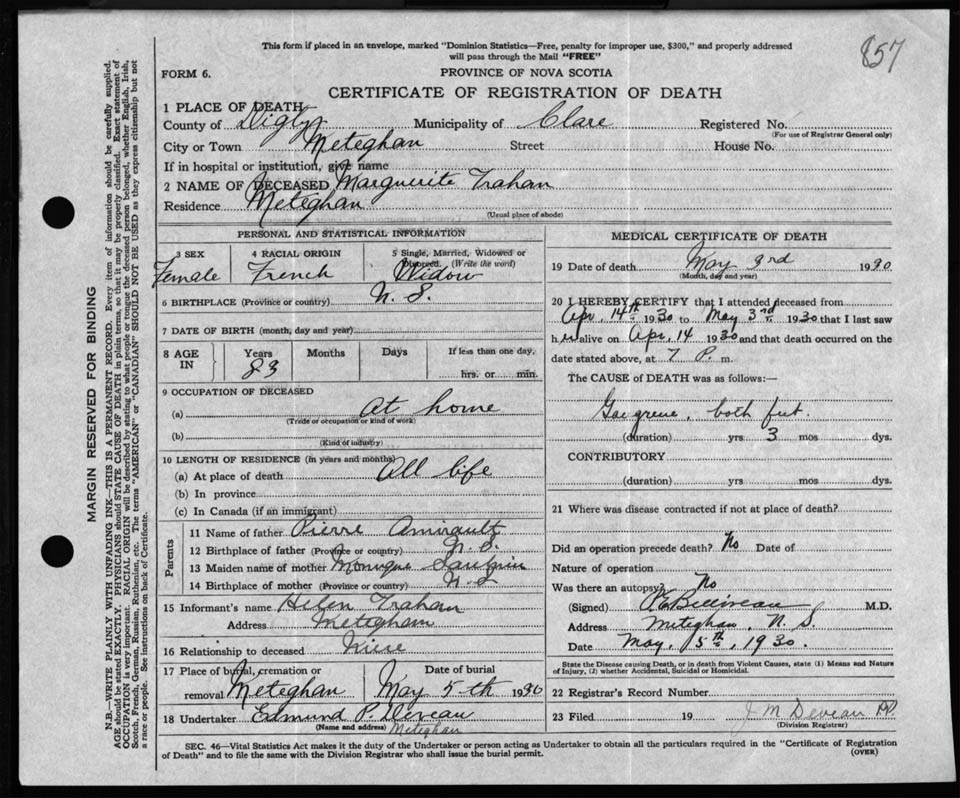 857
This form if placed in an envelope, marked "Dominion Statistics—Free, penalty for improper use, $300," and properly addressed
will pass through the Mail "FREE"
FORM 6.
PROVINCE OF NOVA SCOTIA
CERTIFICATE OF REGISTRATION OF DEATH
1 PLACE OF DEATH
County of Digby Municipality of Clare Registered No.
(For use of Registrar General only)
City or Town Meteghan Street House No.
If in hospital or institution, give name
2 NAME OF DECEASED Marguerite Trahan
Residence Meteghan
(Usual place of abode)
PERSONAL AND STATISTICAL INFORMATION
3 SEX 4 RACIAL ORIGIN 5 Single, Married, Widowed or
Divorced. (Write the word)
Female French Widow
6 BIRTHPLACE (Province or country) N. S.
7 DATE OF BIRTH (month, day and year)
8 AGE IN Years Months Days If less than one day,
83 hrs. or min.
9 OCCUPATION OF DECEASED
(a) At home
(Trade or occupation or kind of work)
(b)
(Kind of industry)
10 LENGTH OF RESIDENCE (in years and months)
(a) At place of death All life
(b) In province
(c) In Canada (if an immigrant)
Parents
11 Name of father Pierre Amirault
12 Birthplace of father (Province or country) N. S.
13 Maiden name of mother Monique
14 Birthplace of mother (Province or country) N. S.
15 Informant's name Helen Trahan
Address Meteghan
16 Relationship to deceased Niece
17 Place of burial, cremation or Date of burial
removal Meteghan May 5th 1930
18 Undertaker Edmund P. Deveau
(Name and address) Meteghan
MEDICAL CERTIFICATE OF DEATH
19 Date of death May 3rd 1930
(Month, day and year)
20 I HEREBY CERTIFY that I attended deceased from
Apr. 14th 1930 to May 3rd 1930 that I last saw
her alive on Apr. 14 1930 and that death occurred on the
date stated above, at 7 P. m.
The CAUSE of DEATH was as follows:—
Gangrene, both feet.
(duration) yrs 3 mos dys.
CONTRIBUTORY
(duration) yrs mos dys.
21 Where was disease contracted if not at place of death?
Did an operation precede death? No Date of
Nature of operation
Was there an autopsy? No
(Signed) Belliveau M.D.
Address Meteghan, N. S.
Date May, 5th, 1930.
State the Disease causing Death, or in death from Violent Causes, state (1) Means and Nature
of Injury, (2) whether Accidental, Suicidal or Homicidal.
22 Registrar's Record Number
23 Filed 19 J M Deveau
(Division Registrar)
SEC. 46—Vital Statistics Act makes it the duty of the Undertaker or person acting as Undertaker to obtain all the particulars required in the "Certificate of Registration
of Death" and to file the same with the Division Registrar who shall issue the burial permit.
(OVER)
MARGIN RESERVED FOR BINDING
N.B.—WRITE PLAINLY WITH UNFADING INK—THIS IS A PERMANENT RECORD. Every item of information should be carefully supplied.
AGE should be stated EXACTLY. PHYSICIANS should STATE CAUSE OF DEATH in plain terms, so that it may be properly classified. Exact statement of
OCCUPATION is very important. RACIAL ORIGIN will be described by stating to what people or tongue the deceased person belonged, whether English, Irish,
Scotch, French, German, Russian, Ruthenian, etc. The terms "AMERICAN" or "CANADIAN" SHOULD NOT BE USED as they express citizenship but not
a race or people. See instructions on back of Certificate.